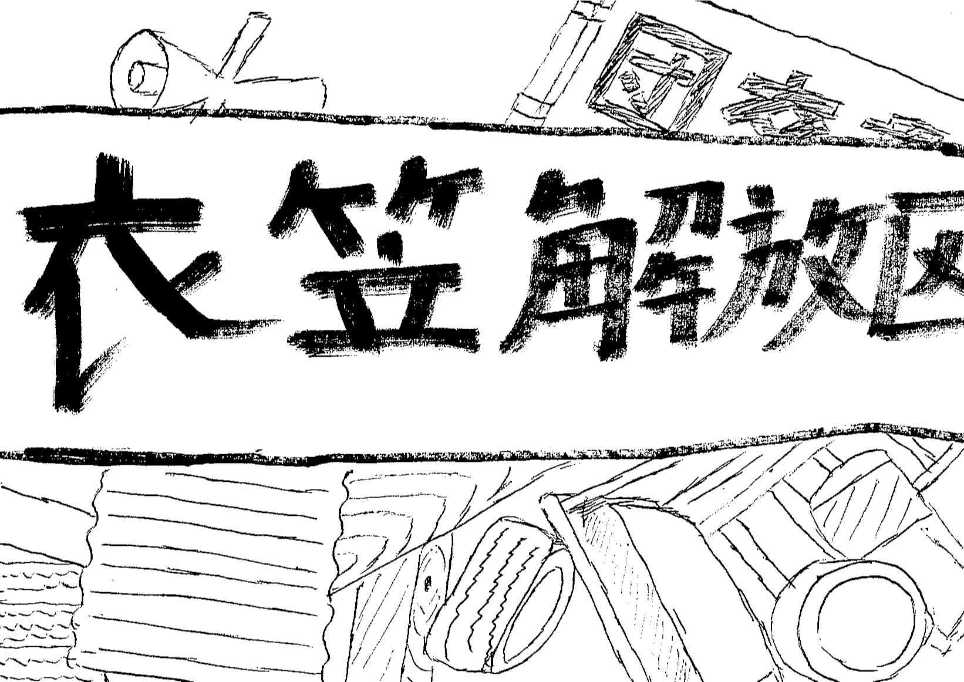 衣笠解放区